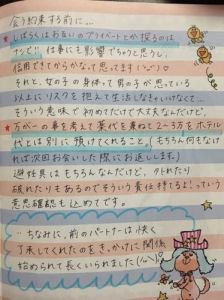 会う約束する前に…
★しばらくはお互いのプライベートとか探るのは
ナシで!! 仕事にも影響でちゃうと思うし、
信用できてからかなって思ってます(´ω`)♡
それと、女の子の身体って男の子が思っている
以上にリスクを抱えて生活しなきゃいけなくて…
そういう意味で初めてだけで大丈夫なんだけど、
★万が一の事を考えて薬代を兼ねて2〜3万をホテル
代とは別に預けてくれること。(もちろん何もなけ
れば次回お会いした際にお返しします。)
避妊具はもちろんなんだけど、外れたり
破れたりもあるのでそういう責任持てるよ!っていう
意思確認も込めてです。
…ちなみに、前のパートナーは快く
了承してくれたのをきっかけに関係
始められて長くいられました(´ω`)♡